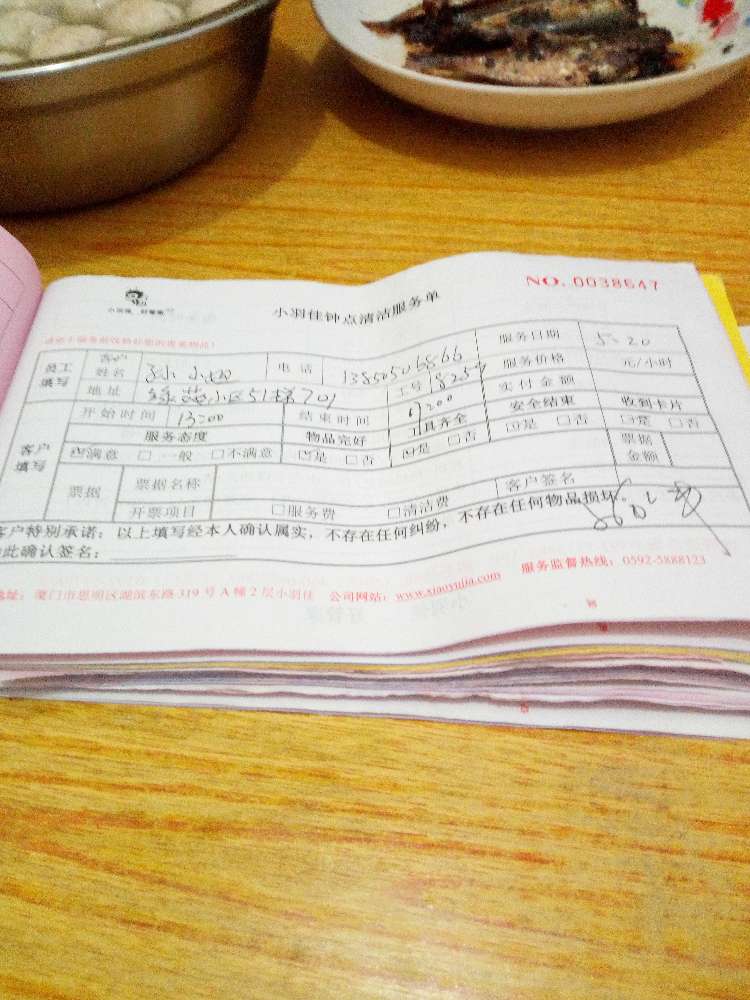 NO. 0038647
小羽佳钟点清洁服务单
员工填写 客户姓名 孙小姐 电话 服务日期 5-20
地址 工号 服务价格 元/小时
开始时间 13:00 结束时间 实付金额
客户填写 服务态度 物品完好 工具齐全 安全结束 收到卡片
☑满意 □一般 □不满意 ☑是 □否 ☑是 □否 ☑是 □否 □是 □否
票据 票据名称 客户签名 票据金额
开票项目 □服务费 □清洁费
客户特别承诺：以上填写经本人确认属实，不存在任何纠纷，不存在任何物品损坏。
此确认签名：
地址：厦门市思明区湖滨东路319号A幢2层小羽佳 公司网站：www.xiaoyujia.com 服务监督热线：0592-5888123